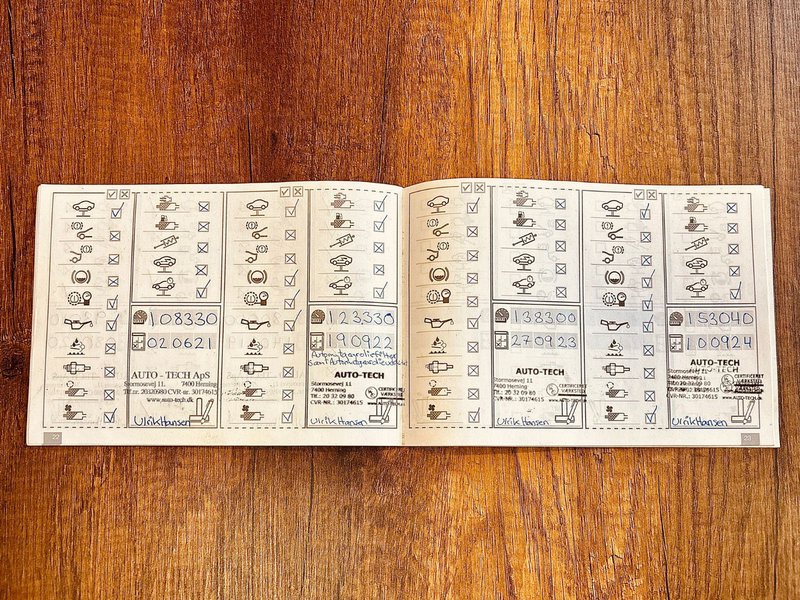 108330
020621
AUTO - TECH ApS
Stormosevej 11. 7400 Herning
Tlf.nr. 20320980 CVR-nr. 30174615
www.auto-tech.dk
Ulrik Hansen
22
123330
190922
Automatgearoliefilter
AUTO-TECH
Stormosevej 11
7400 Herning
Tlf.: 20 32 09 80
CVR-NR.: 30174615
CERTIFICERET
VÆRKSTED
www.AUTO-TECH.dk
Ulrik Hansen
138300
270923
AUTO-TECH
Stormosevej 11
7400 Herning
Tlf.: 20 32 09 80
CVR-NR.: 30174615
CERTIFICERET
VÆRKSTED
Ulrik Hansen
153040
100924
AUTO-TECH
Stormosevej 11
7400 Herning
CERTIFICERET
VÆRKSTED
Ulrik Hansen
23